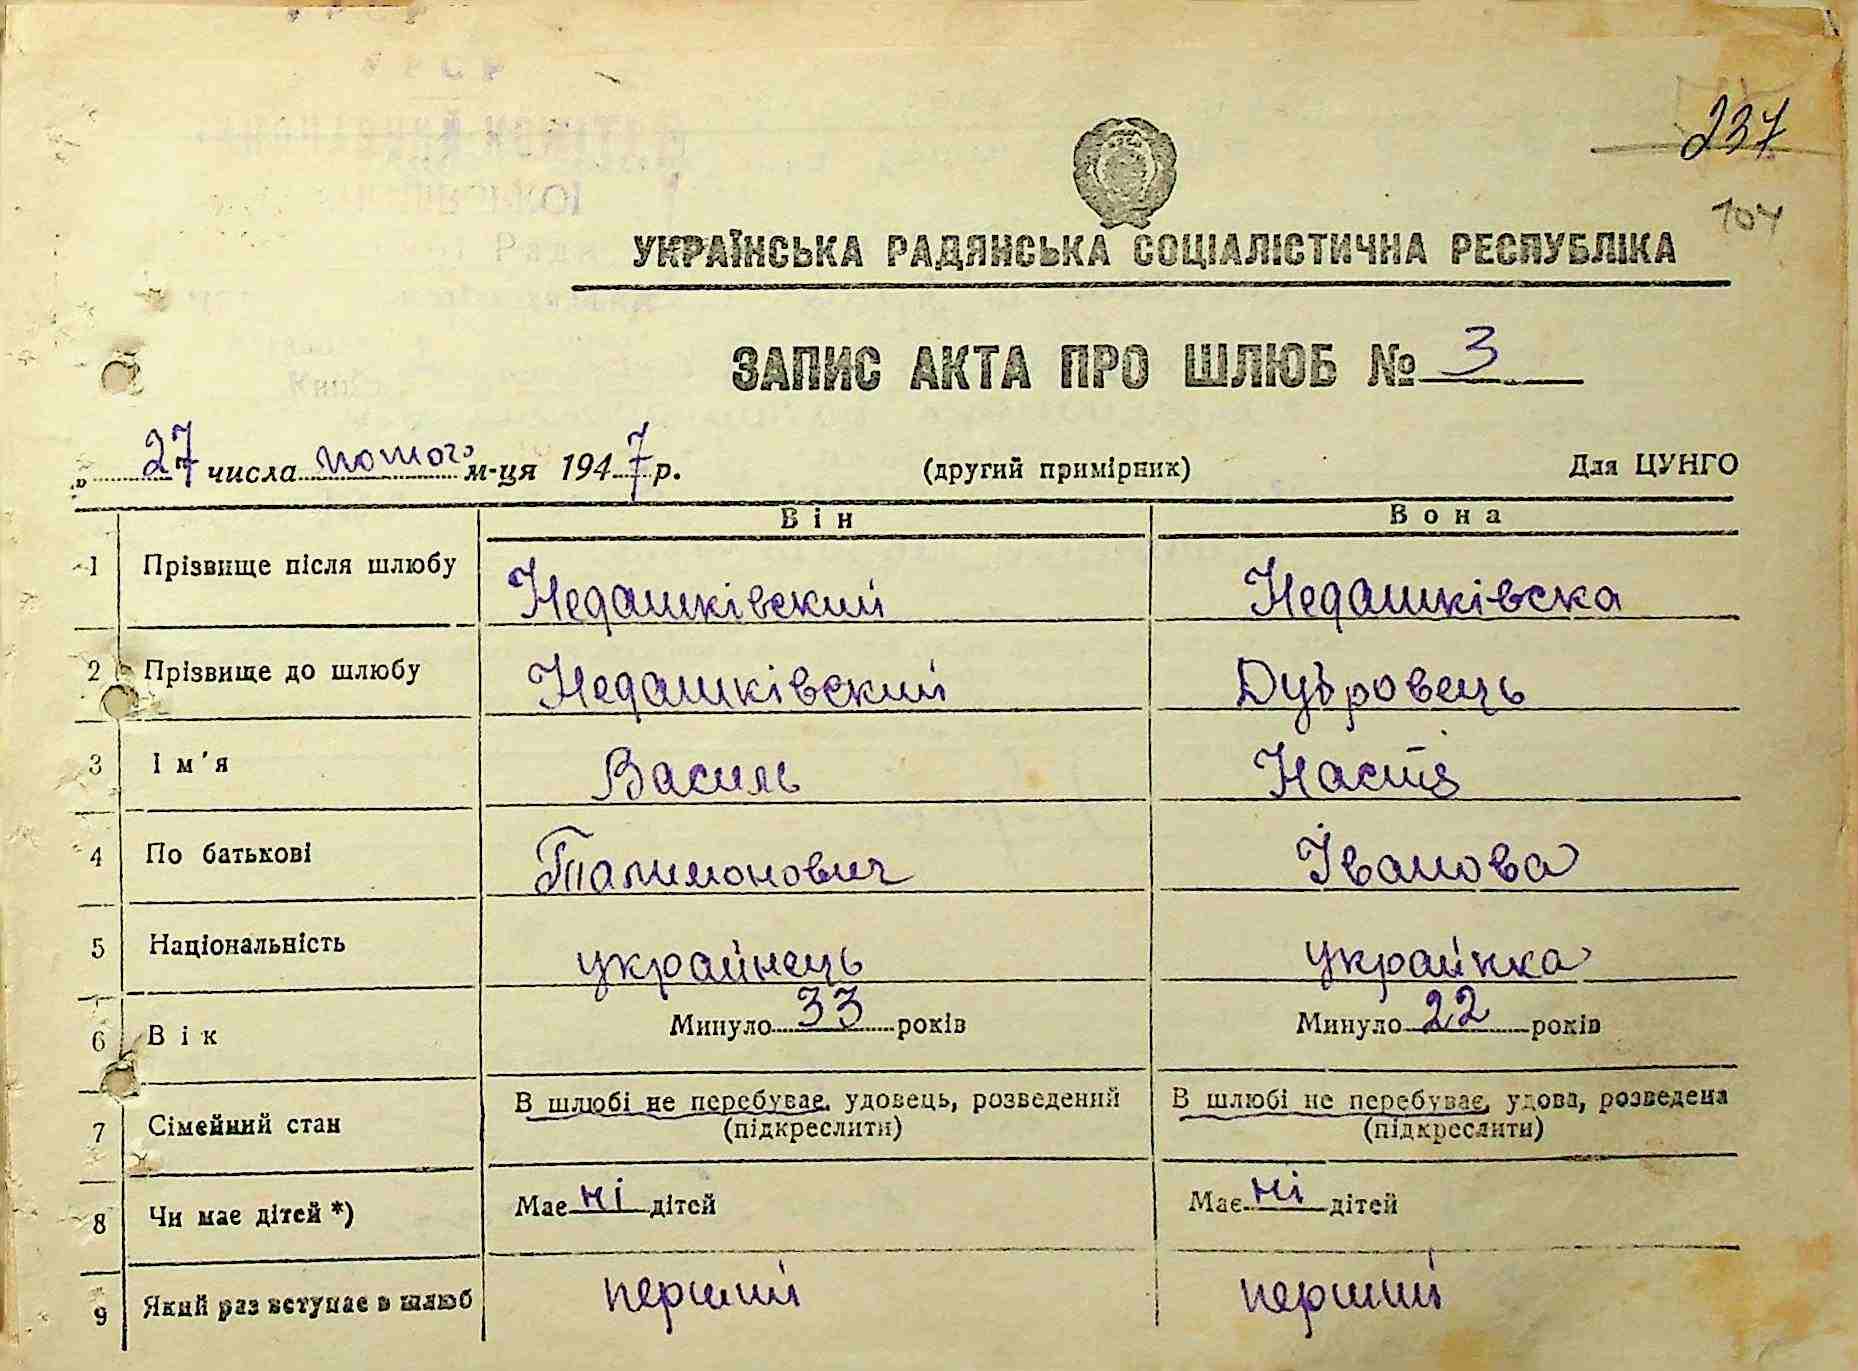 237
104
УКРАЇНСЬКА РАДЯНСЬКА СОЦІАЛІСТИЧНА РЕСПУБЛІКА
ЗАПИС АКТА ПРО ШЛЮБ № 3
27 числа лютого м-ця 1947 р. (другий примірник) Для ЦУНГО
Він Вона
1 Прізвище після шлюбу Недашківский Недашківска
2 Прізвище до шлюбу Недашківский Дубровець
3 Ім'я Василь Настя
4 По батькові Талимонович Іванова
5 Національність украйнець украйнка
6 Вік Минуло 33 років Минуло 22 років
7 Сімейний стан В шлюбі не перебуває, удовець, розведений (підкреслити) В шлюбі не перебуває, удова, розведена (підкреслити)
8 Чи має дітей *) Має ні дітей Має ні дітей
9 Який раз вступає в шлюб перший перший